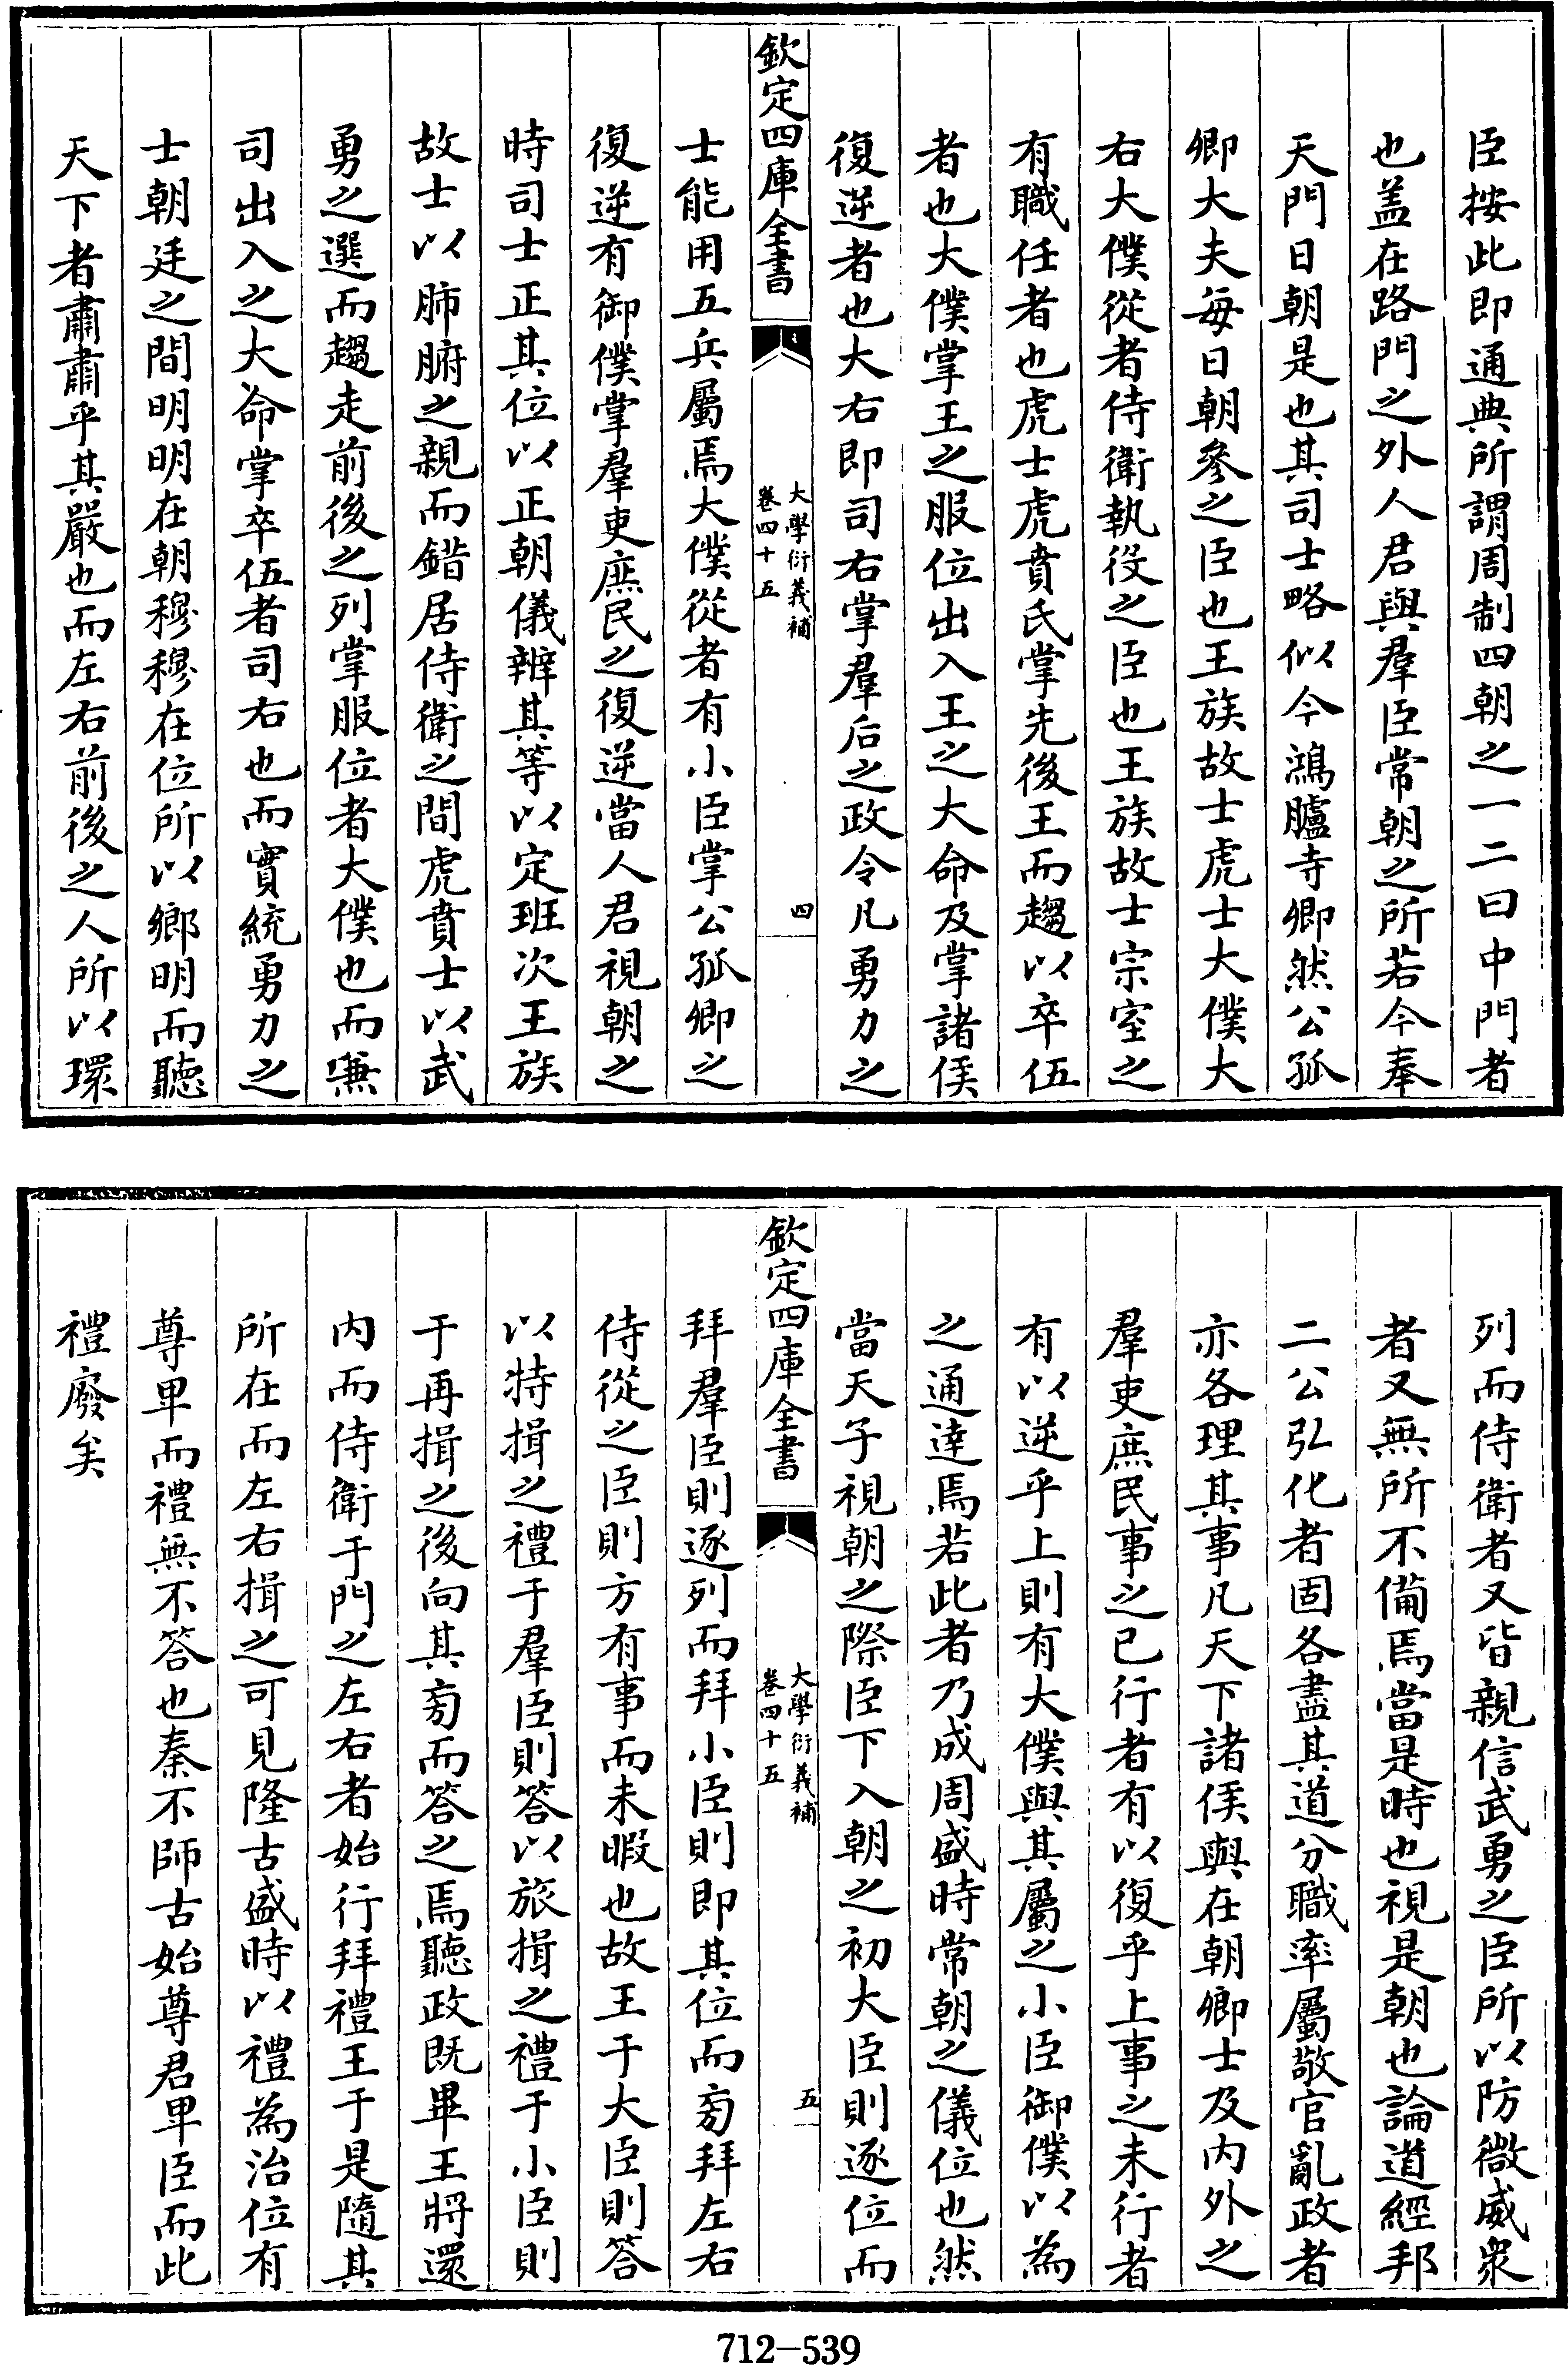 臣按此即通典所謂周制四朝之一二曰中門者
也盖在路門之外人君與羣臣常朝之所若今奉
天門日朝是也其司士略似今鴻臚寺卿然公孤
卿大夫每日朝參之臣也王族故士虎士大僕大
右大僕從者侍衛執役之臣也王族故士宗室之
有職任者也虎士虎賁氏掌先後王而趨以卒伍
者也大僕掌王之服位出入王之大命及掌諸侯
復逆者也大右即司右掌羣后之政令凡勇力之
欽定四庫全書
大學衍義補
卷四十五
四
士能用五兵屬焉大僕從者有小臣掌公孤卿之
復逆有御僕掌羣吏庶民之復逆當人君視朝之
時司士正其位以正朝儀辨其等以定班次王族
故士以肺腑之親而錯居侍衛之間虎賁士以武
勇之選而趨走前後之列掌服位者大僕也而兼
司出入之大命掌卒伍者司右也而實統勇力之
士朝廷之間明明在朝穆穆在位所以鄉明而聽
天下者肅肅乎其嚴也而左右前後之人所以環
列而侍衛者又皆親信武勇之臣所以防微威衆
者又無所不備焉當是時也視是朝也論道經邦
二公弘化者固各盡其道分職率屬敬官亂政者
亦各理其事凡天下諸侯與在朝卿士及内外之
羣吏庶民事之已行者有以復乎上事之未行者
有以逆乎上則有大僕與其屬之小臣御僕以為
之通達焉若此者乃成周盛時常朝之儀位也然
當天子視朝之際臣下入朝之初大臣則逐位而
欽定四庫全書
大學衍義補
卷四十五
五
拜羣臣則逐列而拜小臣則即其位而旁拜左右
侍從之臣則方有事而未暇也故王于大臣則答
以特揖之禮于羣臣則答以旅揖之禮于小臣則
于再揖之後向其旁而答之焉聽政既畢王將還
内而侍衛于門之左右者始行拜禮王于是隨其
所在而左右揖之可見隆古盛時以禮為治位有
尊卑而禮無不答也秦不師古始尊君卑臣而此
禮廢矣
712-539